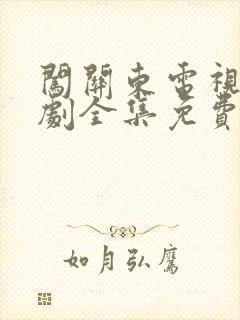 闖關東電視
劇全集免費
如月弘鷹